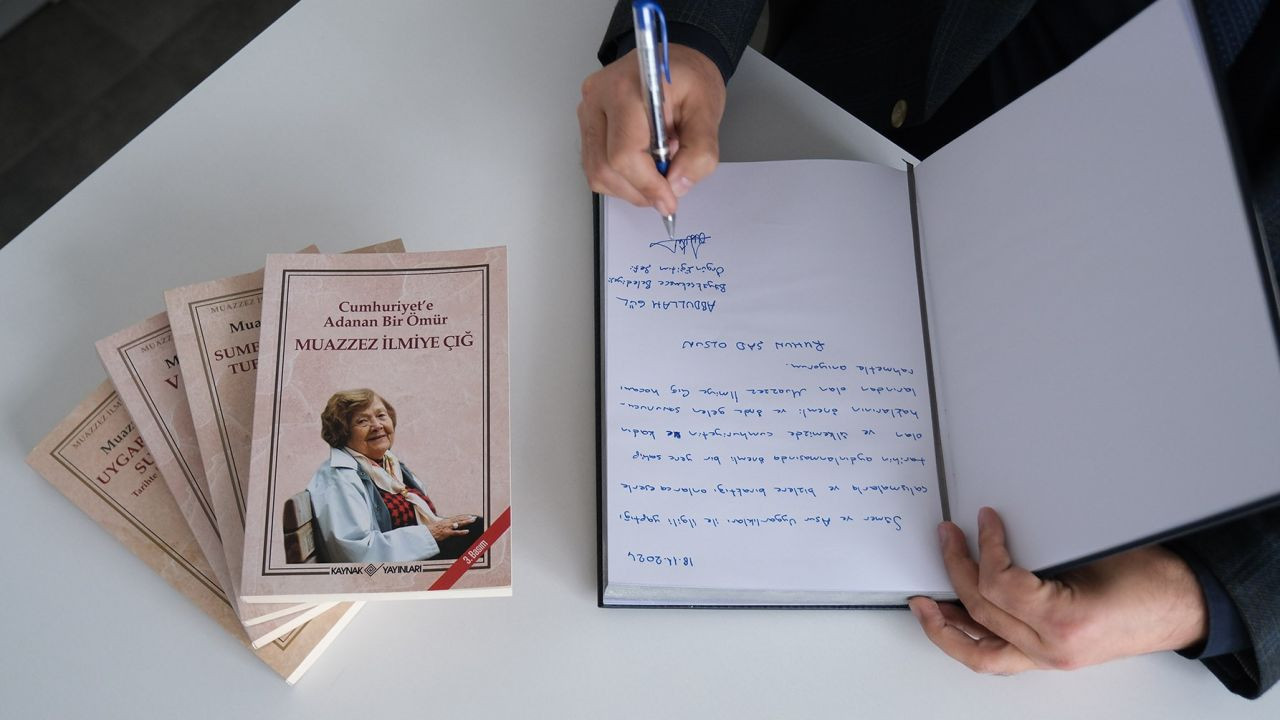 Cumhuriyet'e
Adanan Bir Ömür
MUAZZEZ İLMİYE ÇIĞ
3. Basım
KAYNAK YAYINLARI
MUAZZEZ İL
Mua
SUME
TU
MUAZZ
M
V
MUAZZEZ İLM
Muaz
UYGAR
SU
Tarihte
18.11.2024
Sümer ve Asur Uygarlıkları ile ilgili yaptığı
çalışmalarla ve bizlere bıraktığı onlarca eserle
tarihin aydınlanmasında önemli bir yere sahip
olan ve ülkemizde cumhuriyetin ve kadın
haklarının önemli ve önde gelen savunucu-
larından olan Muazzez İlmiye Çığ hocamı
rahmetle anıyorum.
RUHUN ŞAD OLSUN
ABDULLAH GÜL
Büyükçekmece Belediyesi
Örgün Eğitim Şef.